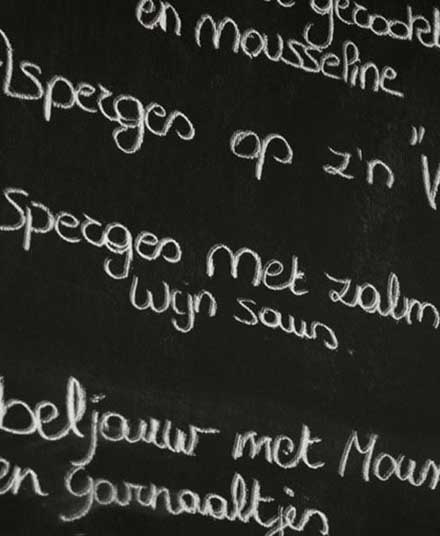 en mousseline
Asperges op z'n "V
sperges met zalm
wijn saus.
beljauw met Mous
en garnaaltjes